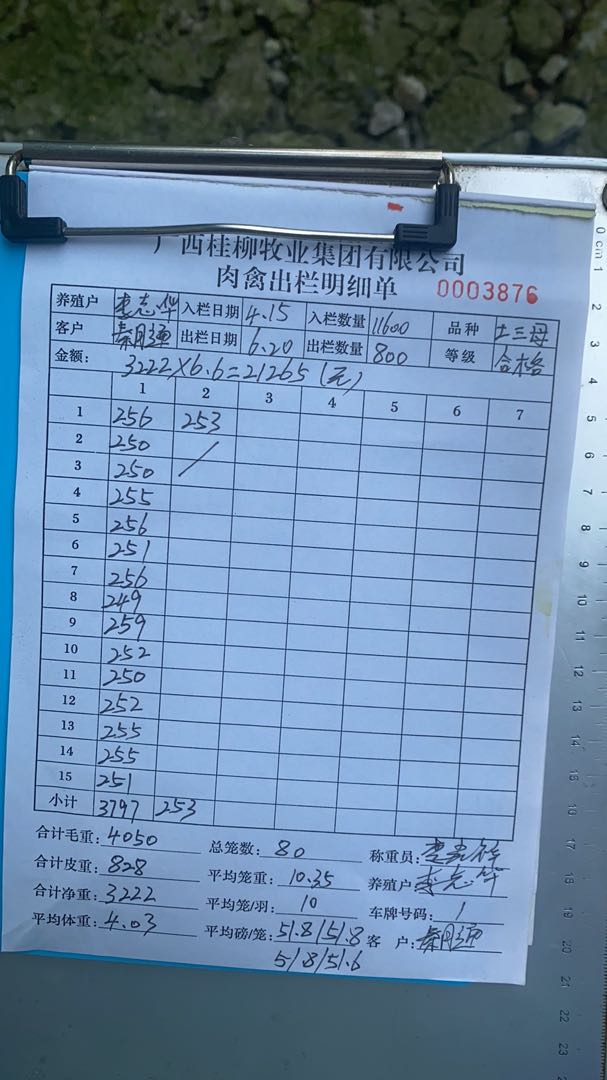 广西桂柳牧业集团有限公司
肉禽出栏明细单 0003876
养殖户 李志华 入栏日期 4.15 入栏数量 11600 品种 土三母
客户 秦明通 出栏日期 6.20 出栏数量 800 等级 合格
金额: 3222×6.6=21265(元)
1 2 3 4 5 6 7
1 256 253
2 250 /
3 250
4 255
5 256
6 251
7 256
8 249
9 259
10 252
11 250
12 252
13 255
14 255
15 251
小计 3797 253
合计毛重: 4050 总笼数: 80 称重员: 李志华
合计皮重: 828 平均笼重: 10.35 养殖户: 李志华
合计净重: 3222 平均笼/羽: 10 车牌号码: 1
平均体重: 4.03 平均磅/笼: 51.8/51.8 客 户: 秦明通
51.8/51.6
0 cm 1 2 3 4 5 6 7 8 9 10 11 12 13 14 15 16 17 18 19 20 21 22 23